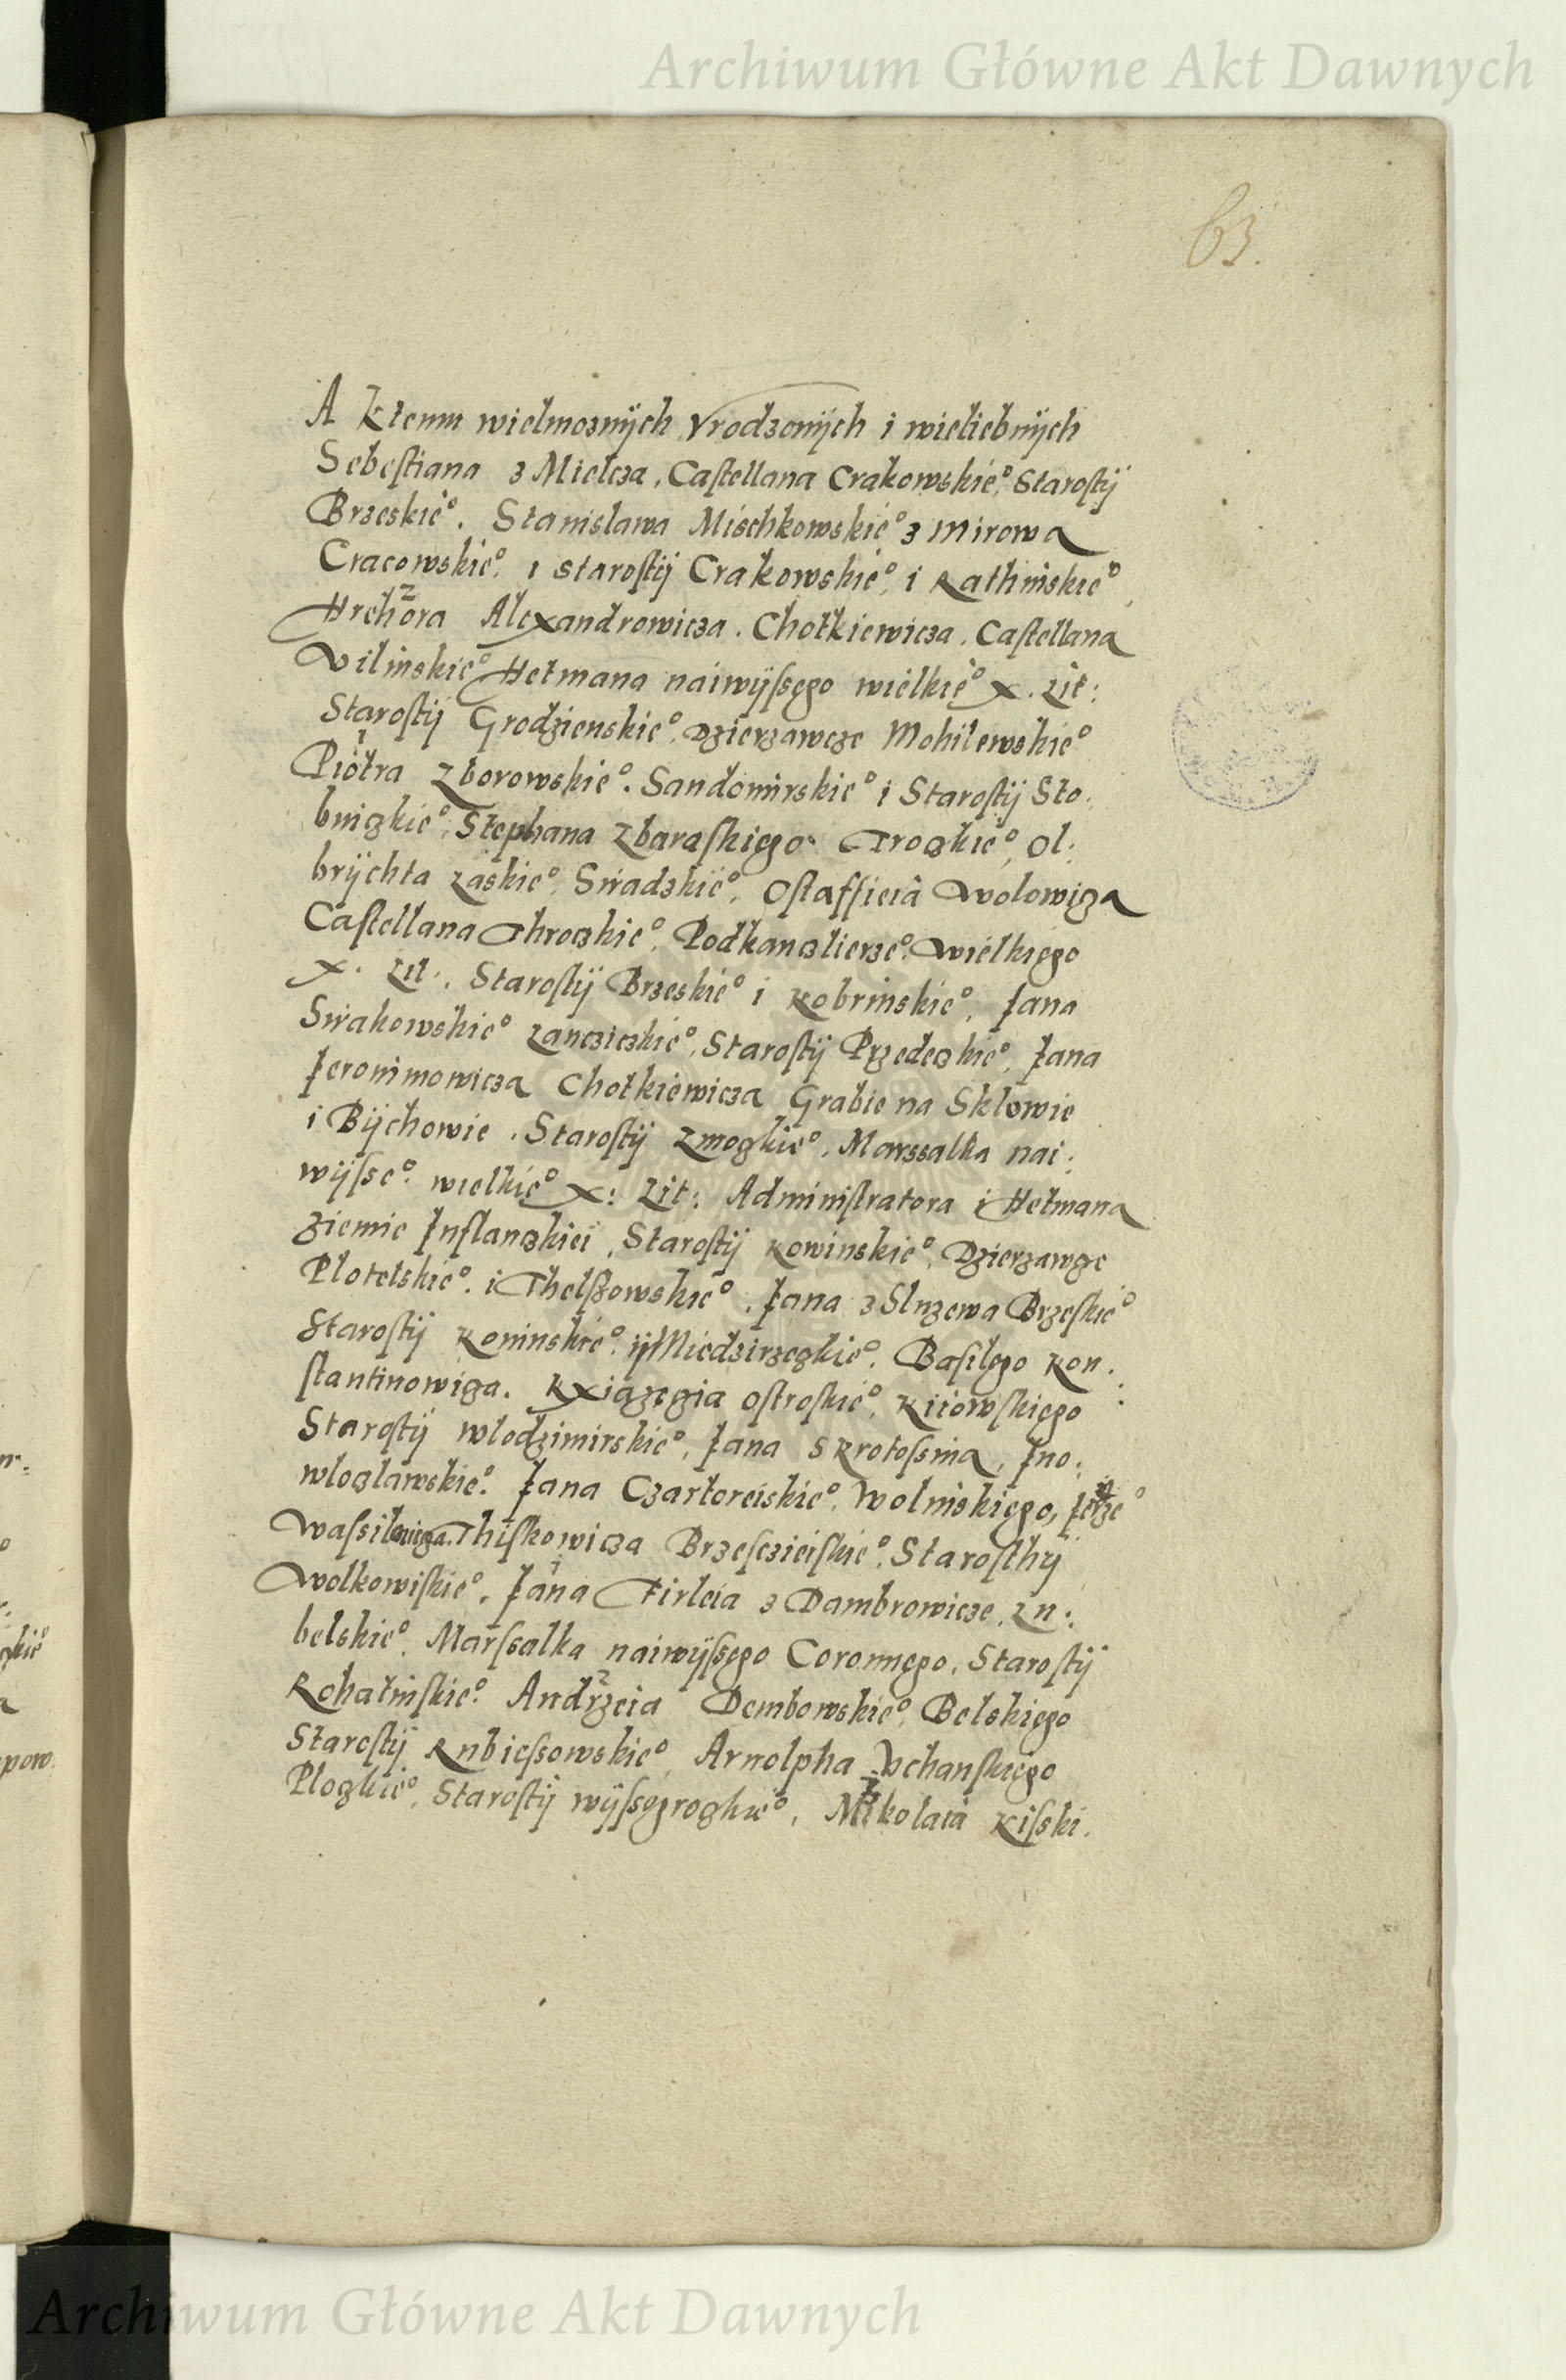 Archiwum Główne Akt Dawnych
63.
A Ktemu wielmoznÿch Vrodzonÿch i wieliebnÿch
Sebestiana z Mielcza, Castellana Crakowskie°, Starostÿ
Brzeskie°. Stanislawa Mischkowskie° z Mirowa
Cracowskie°. i starostÿ Crakowskie°, i Rathinskie°,
Hrehora Alexandrowicza. Chotkiewicza, Castellana
Vilinskie° Hetmana naiwÿssego wielkie° X. Lit:
Starostÿ Grodzienskie°, Dzierzawcze Mohilewskie°
Piotra Zborowskie°. Sandomirskie° i Starostÿ Sto.
bnizkie°, Stephana Zbaraskiego. Trozkie°, Ol:
brÿchta Laskie°, Siradzkie°, Ostaffieia Wolowiza
Castellana Throczkie°, Podkanczlierze°. Wielkiego
X. Lit., Starostÿ Brzeskie° i Kobrinskie°, Jana
Sirakowskie° Lancziczkie°, Starostÿ Przedeczkie°, Jana
Jeronimowicza Chotkiewicza Grabie na Sklowie
i Bÿchowie, Starostÿ Zmozkie°, Marssalka nai:
wÿsse°. wielkie° X: Lit: Administratora i Hetmana
Ziemie Inflanczkiei, Starostÿ Kowinskie°, Dzierzawze
Plotelskie°. i Thelszowskie°, Jana z Sluzewa Brzeskie°
Starostÿ Koninskie°. ÿ Miedzirzezkie°. Basilego Kon.
stantinowiza. Kxiazezia Ostroskie°, Kiiowskiego:
Starostÿ Wlodzimirskie°, Jana S Krotossina, Jno:
wloczlawskie°. Jana Czartoreiskie°, Wolinskiego, Jerze°
Wassilewiza. Thiskowicza Brzescieiskie°, Starosthÿ
Wolkowiskie°, Jana Firleia z Dambrowicze, Lu:
belskie°, Marssalka naiwÿssego Coronnego, Starostÿ
Rohatinskie°. Andrzeia Dembowskie°, Belskiego
Starostÿ Rubiessowskie°, Arnolpha Vchanskiego
Plozkie°, Starostÿ wÿssegrozkie°, Mikolaia Kisski.
Archiwum Główne Akt Dawnych